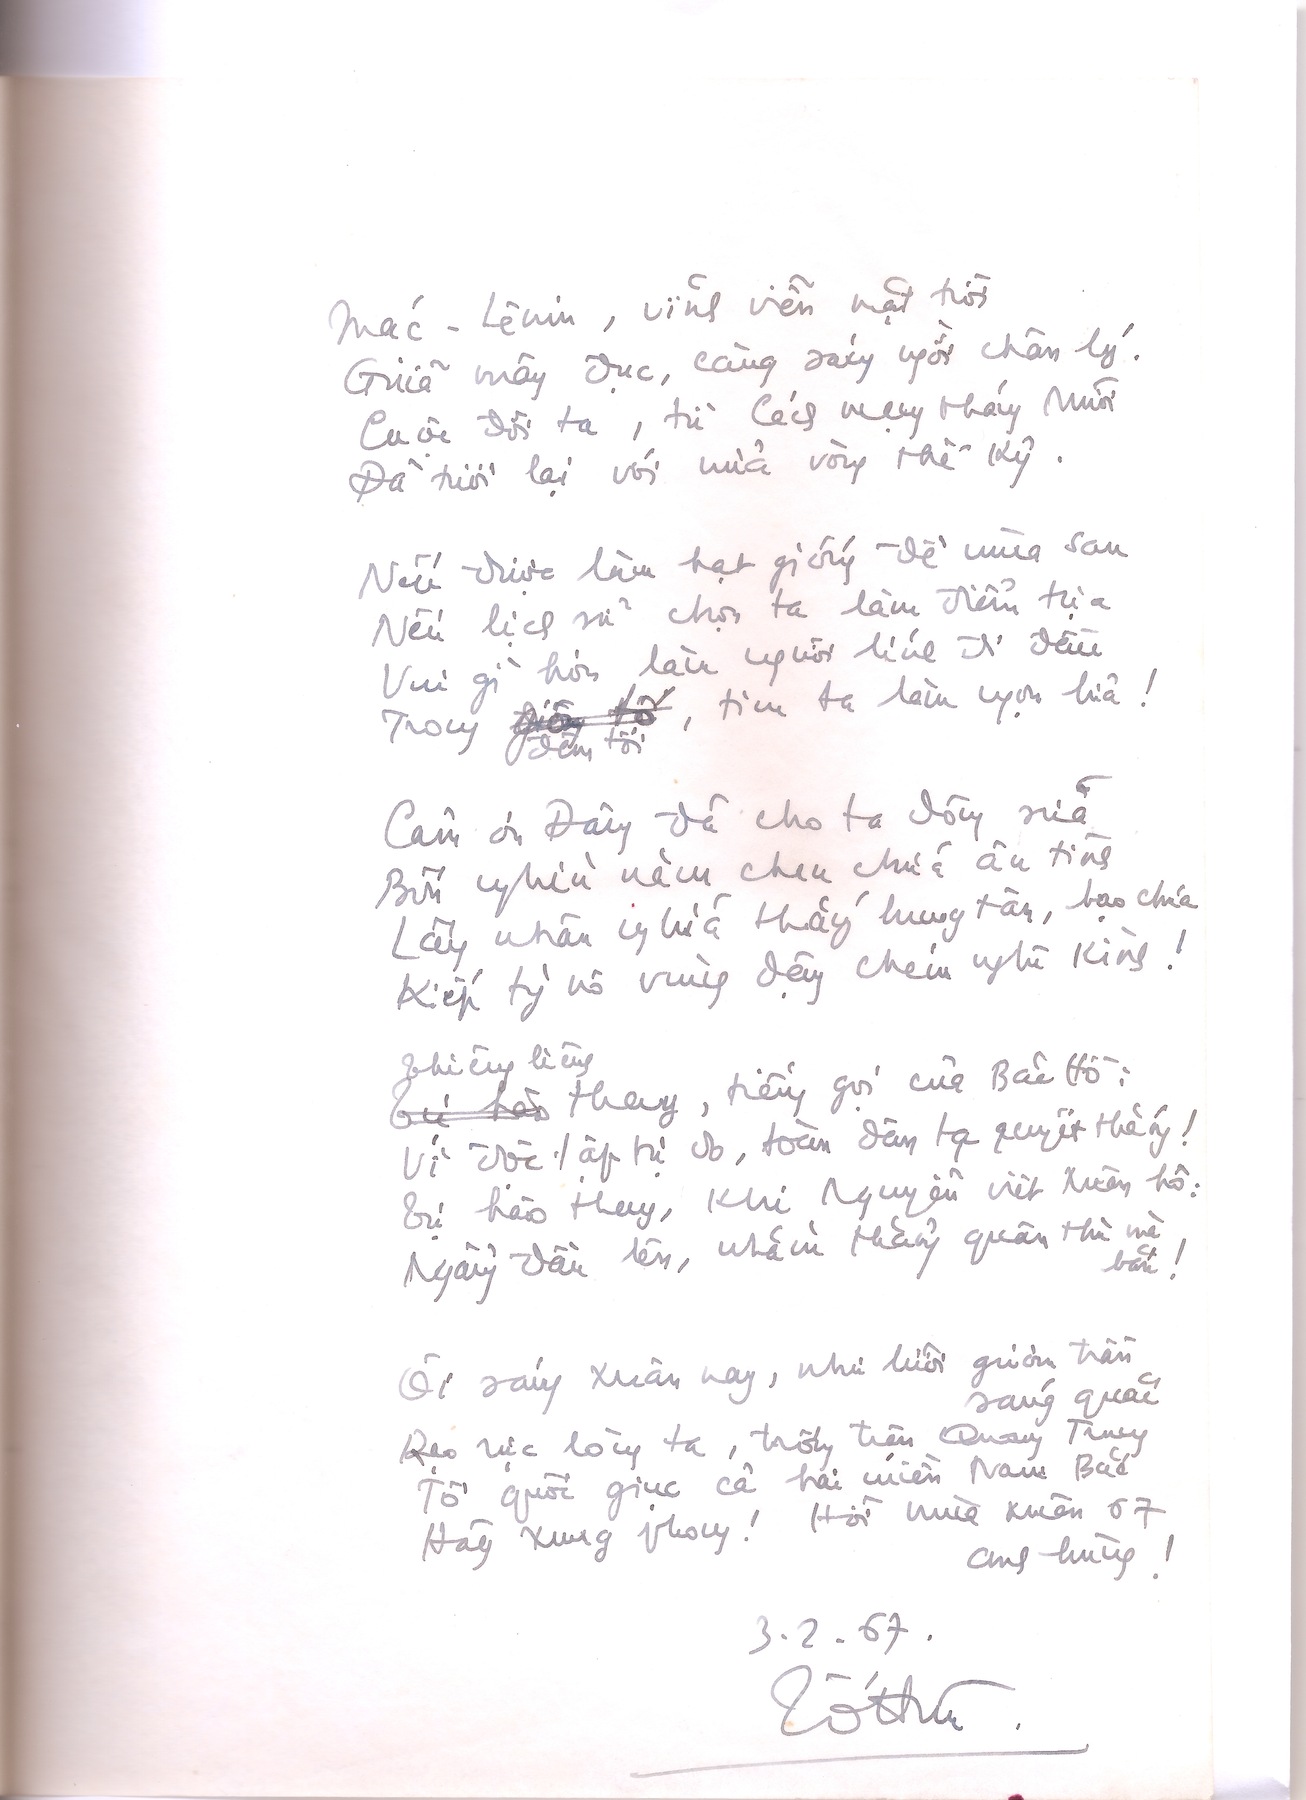 Mác - Lênin, vĩnh viễn mặt trời
Giữa mây đục, càng sáng ngời chân lý.
Cuộc đời ta, từ Cách mạng tháng Mười
Đã tươi lại với mùa vòng thế kỷ.
Nếu được làm hạt giống để mùa sau
Nếu lịch sử chọn ta làm điểm tựa
Vui gì hơn làm người lính đi đầu
Trong đêm tối, tim ta làm ngọn lửa!
Cảm ơn Đảng đã cho ta dòng sữa
Bốn nghìn năm chan chứa ân tình
Lấy nhân nghĩa thắng hung tàn, bạo chúa
Kiếp tỳ nô vùng dậy chém nghê kình!
thiêng liêng
tự hào thay, tiếng gọi của Bác Hồ:
Vì độc lập tự do, toàn dân ta quyết thắng!
Tự hào thay, khi Nguyễn Viết Xuân hô:
Ngẩng đầu lên, nhằm thẳng quân thù mà
bắn!
Ôi sáng xuân nay, như lưỡi gươm trần
sáng quắc
Rạo rực lòng ta, trống trận Quang Trung
Tổ quốc giục cả hai miền Nam Bắc
Hãy xung phong! Hỡi mùa xuân 67
anh hùng!
3.2.67.
Tố Hữu.